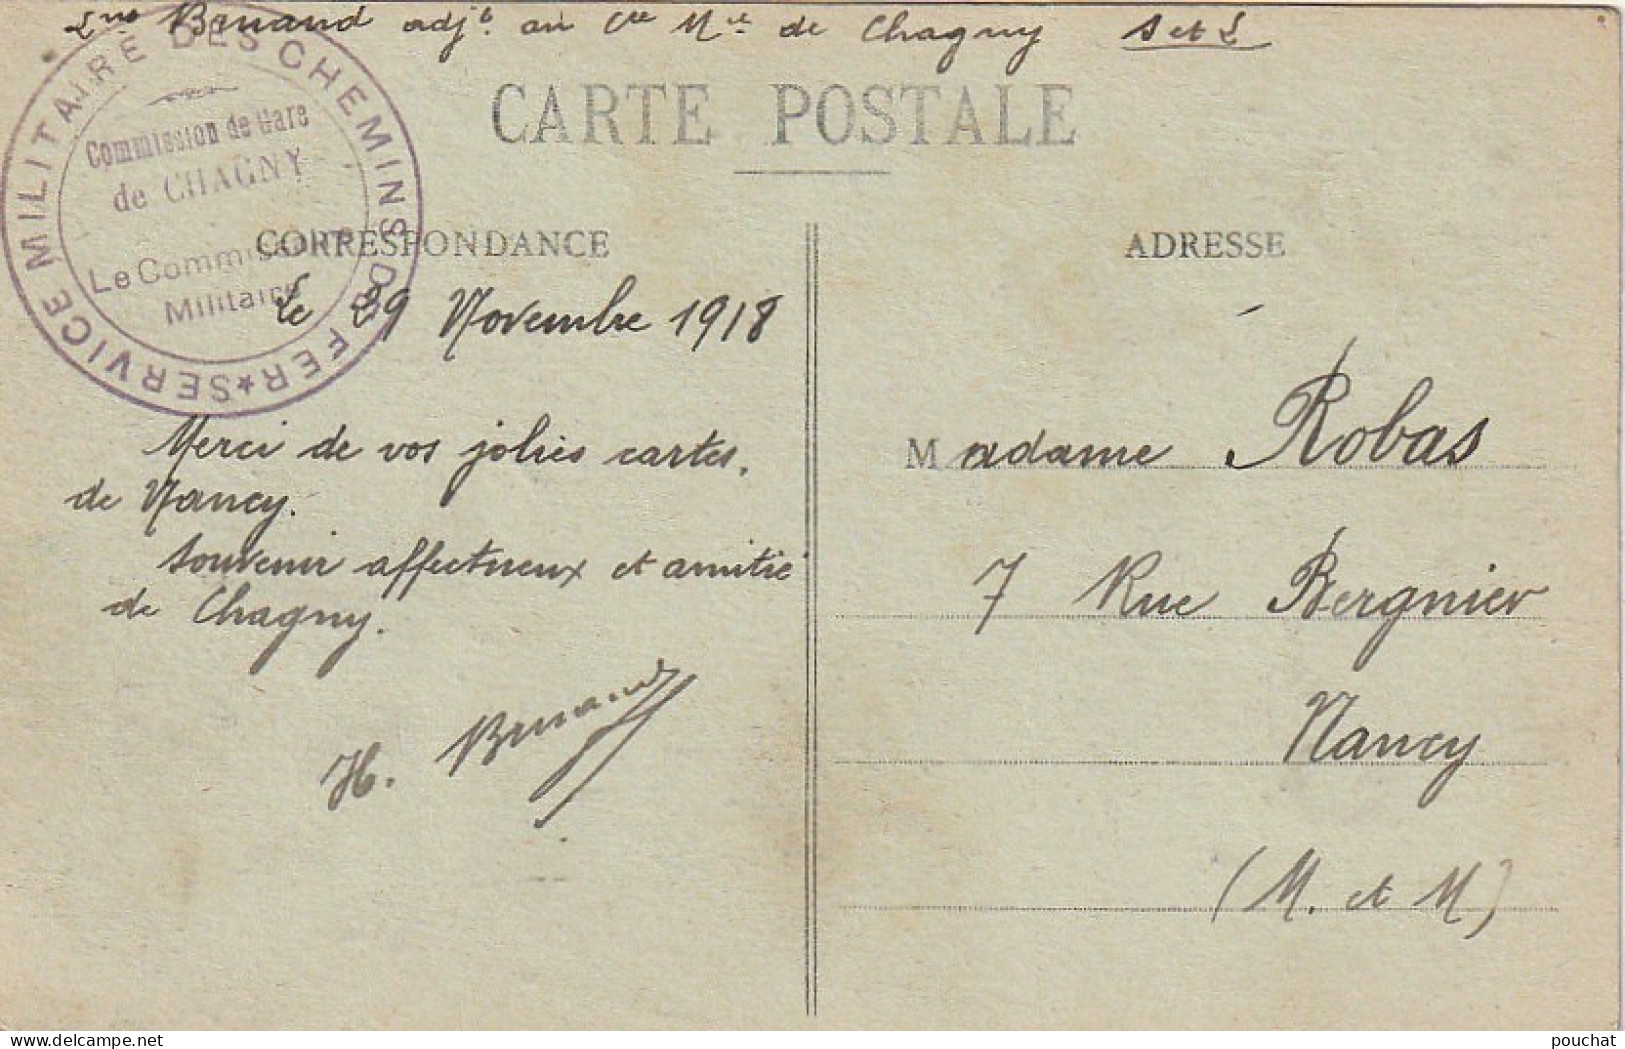 Lne Benand adjt au Cre Mre de Chagny S et L
CARTE POSTALE
SERVICE MILITAIRE DES CHEMINS DE FER ★
Commission de Gare
de CHAGNY
Le Commissaire
Militaire
CORRESPONDANCE
Le 29 Novembre 1918
Merci de vos jolies cartes,
de Nancy.
Souvenir affectueux et amitié
de Chagny.
H. Benand
ADRESSE
Madame Robas
7 Rue Bergnier
Nancy
(M. et M)
delcampe.net
pouchat